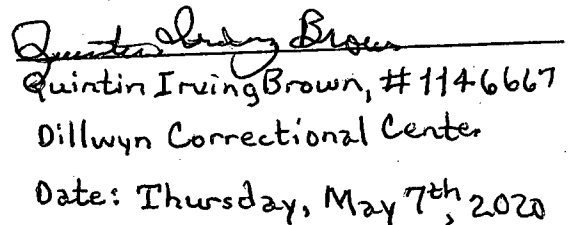 Quintin Irving Brown
Quintin Irving Brown, #1146667
Dillwyn Correctional Center
Date: Thursday, May 7th, 2020